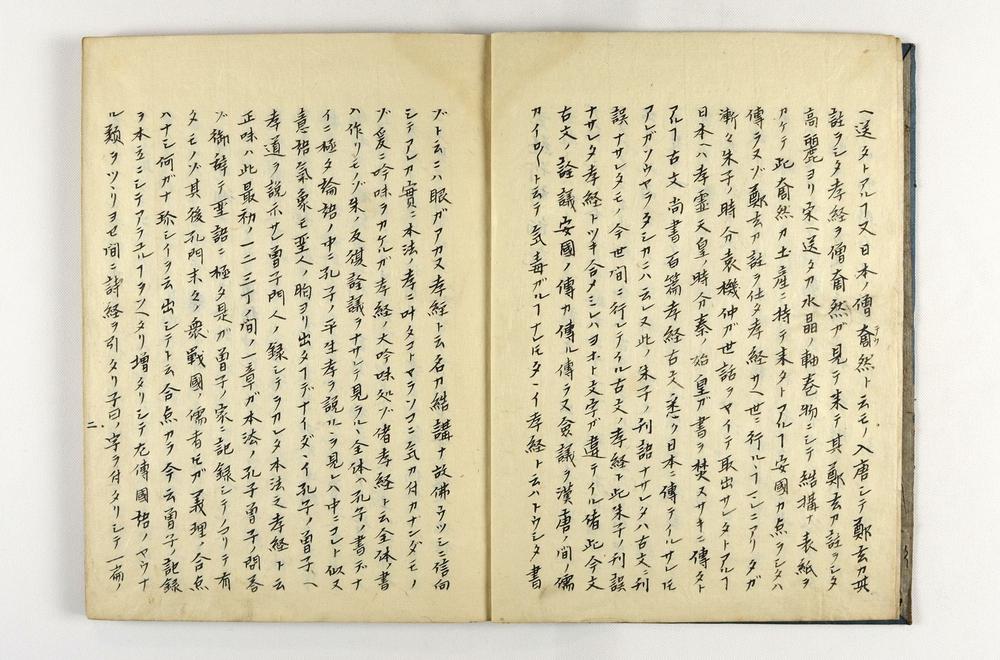 ヘ送タトアルフ又日本ノ僧奝然ト云モノ入唐シテ鄭玄カ其
テウ
註ヲシタ孝経ヲ僧奝然ガ見テ来テ其鄭玄カ註ヲシタ
高麗ヨリ宋ヘ送タカ水晶ノ軸巻物ニシテ結構ナ表紙ヲ
カケテ此奝然カ土産ニ持テ来タトアルフ安國カ点ヲシタハ
傳ラヌゾ鄭玄カ註ヲ仕タ孝経サヘ世ニ行ルヽフマレニアリタガ
漸々朱子ノ時分袁機仲ガ世話ヲヤイテ取出サレタトアルフ
日本ヘハ孝霊天皇ノ時分秦ノ始皇ガ書ヲ焚ヌサキニ傳タト
アルフ古文尚書百篇孝経古文ハ日本ニ傳テイルサレ𪜈
アレガソウヤラタシカニハ云レヌ此ノ朱子ノ刊誤ナサレタハ古文ニ刊
誤ナサレタモノ今世間ニ行レテイル古文ノ孝経ト此朱子ノ刊誤
ナサレタ孝経トツキ合メミレハヨホト文字ガ違テイル偖此今文
古文ノ詮議安國ノ傳カ傳ル傳ラヌ僉議ヲ漢唐ノ間ノ儒
カイロ〱ト云テ気毒ガルフナレ𪜈タヽイ孝経ト云ハトウシタ書
ゾト云ニハ眼ガアカヌ孝経ト云名カ結講ナ故佛ウツシニ信向
シテアレカ實ニ本法ノ孝ニ叶タコトヤランソコニ気カ付カナンダモノ
ゾ爰ニ吟味ヲカケルガ孝経ノ大吟味処ゾ偖孝経ト云全体ノ書
ハ作リモノゾ朱ノ反復詮議ヲナサレテ見ラルヽ全体ハ孔子ノ書デナ
イニ極タ論語ノ中ニ孔子ノ平生孝ヲ説ルヽヲ見レハ中ニコレト似ヌ
意語気象モ聖人ノ胸ヨリ出タフデナイゾタヽイ孔子ノ曽子ヘ
孝道ヲ説示サレ曽子門人ノ録シテヲカレタ本法之孝経ト云
正味ハ此最初ノ一二三丁ノ間ノ一章ガ本法ノ孔子曽子ノ問答
ゾ御辞テ聖語ニ極タ是ガ曽子ノ家ニ記録シテノコリテ有
タモノゾ其後孔門末々ノ衆戦國ノ儒者𪜈ガ義理ノ合点
ハナシ何ガナ珍シイヲ云出シテト云合点カラ今云曽子ノ記録
ヲ本立ニシテアラユルフヲソヘタリ増タリシテ左傳國語ノヤウナ
ル類ヲツヽリヨセ間ニ詩経ヲ引タリ子曰ノ字ヲ付タリシテ一篇ノ
二